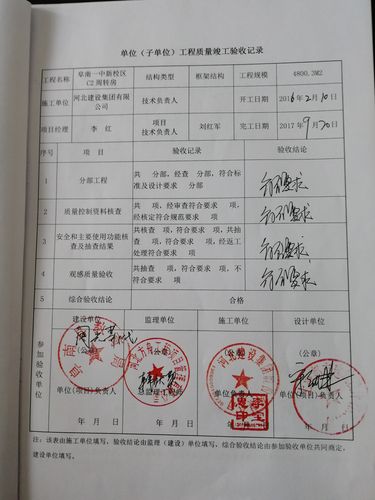 单位（子单位）工程质量竣工验收记录
工程名称 阜南一中新校区C2周转房 结构类型 框架结构 工程规模 4800.3M2
施工单位 河北建设集团有限公司 技术负责人 开工日期 2016年2月10日
项目经理 李红 项目技术负责人 刘红军 完工日期 2017年9月30日
序号 项目 验收记录 验收结论
1 分部工程 共 分部，经查 分部，符合标准及设计要求 分部 符合要求
2 质量控制资料核查 共 项，经审查符合要求 项，经核定符合规范要求 项 符合要求
3 安全和主要使用功能核查及抽查结果 共核查 项，符合要求 项，共抽查 项，符合要求 项，经返工处理符合要求 项 符合要求
4 观感质量验收 共抽查 项，符合要求 项，不符合要求 项 符合要求
5 综合验收结论 合格
参加验收单位 建设单位 监理单位 施工单位 设计单位
（公章） （公章） （公章）
单位(项目)负责人 总监理工程师 单位负责人 单位(项目)负责人
年 月 日
注：该表由施工单位填写，验收结论由监理（建设）单位填写，综合验收结论由参加验收单位共同商定，
建设单位填写。